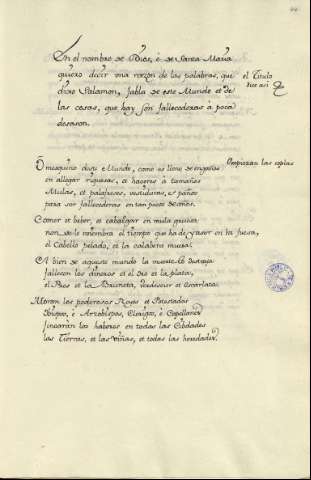 En el nombre de Dios, è de Santa Maria
quiero decir una razon de las palabras, que
dixo Salamon, fabla de este Mundo et de
las casas, que hay son fallecederas à poca
de sazon.
el Titulo
dice asi
Empiezan las coplas
O mesquino deste Mundo, como es lleno de engaños
en allegar riquezas, et haveres à tamaños
Mulas, et palafrenes, vestiduras, et paños
para ser fallecederas en tan poco de años.
Comer et beber, et cabalgar en mula gruesa
non se le miembra el tiempo que ha de yacer en la fuesa,
el Cabello pelado, et la calabera muesa.
A bien de aqueste mundo la muerte lo destaja
fallecen los dineros et el oro et la plata,
el Pres et la Bruneta, verdescur et escarlata.
Moren los poderosos Reyes et Potestades
Obispos, è Arzobispos, Clerigos, è Capellanes
fincarán los haberes en todas las Cibdades
las Tierras, et las viñas, et todas las heredades.